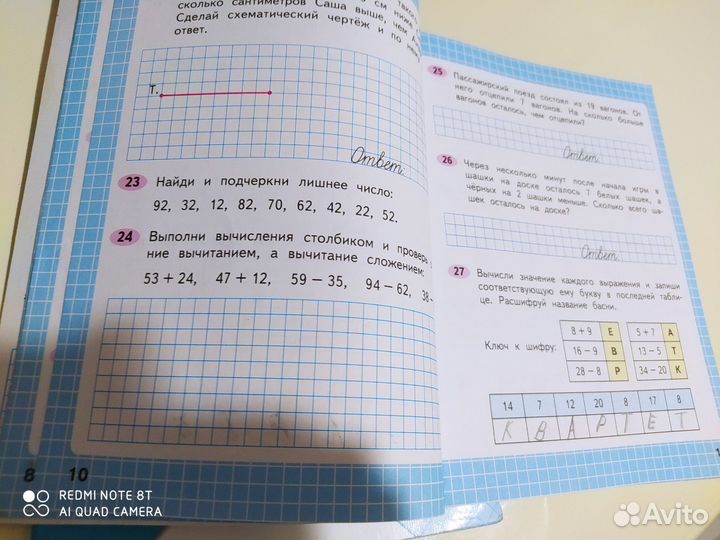 сколько сантиметров Саша выше, чем
Сделай схематический чертёж и по
ответ.
Т.
Ответ:
23 Найди и подчеркни лишнее число:
92, 32, 12, 82, 70, 62, 42, 22, 52.
24 Выполни вычисления столбиком и
ние вычитанием, а вычитание сложением:
53 + 24, 47 + 12, 59 − 35, 94 − 62, 38 −
8 10
25 Пассажирский поезд состоял из 19 вагонов. От
него отцепили 7 вагонов. На сколько больше
вагонов осталось, чем отцепили?
Ответ:
26 Через несколько минут после начала игры в
шашки на доске осталось 7 белых шашек, а
чёрных на 2 шашки меньше. Сколько всего ша-
шек осталось на доске?
Ответ:
27 Вычисли значение каждого выражения и запиши
соответствующую ему букву в последней табли-
це. Расшифруй название басни.
Ключ к шифру:
8 + 9 Е 5 + 7 А
16 − 9 В 13 − 5 Т
28 − 8 Р 34 − 20 К
14 7 12 20 8 17 8
К В А Р Т Е Т
REDMI NOTE 8T
AI QUAD CAMERA
Avito